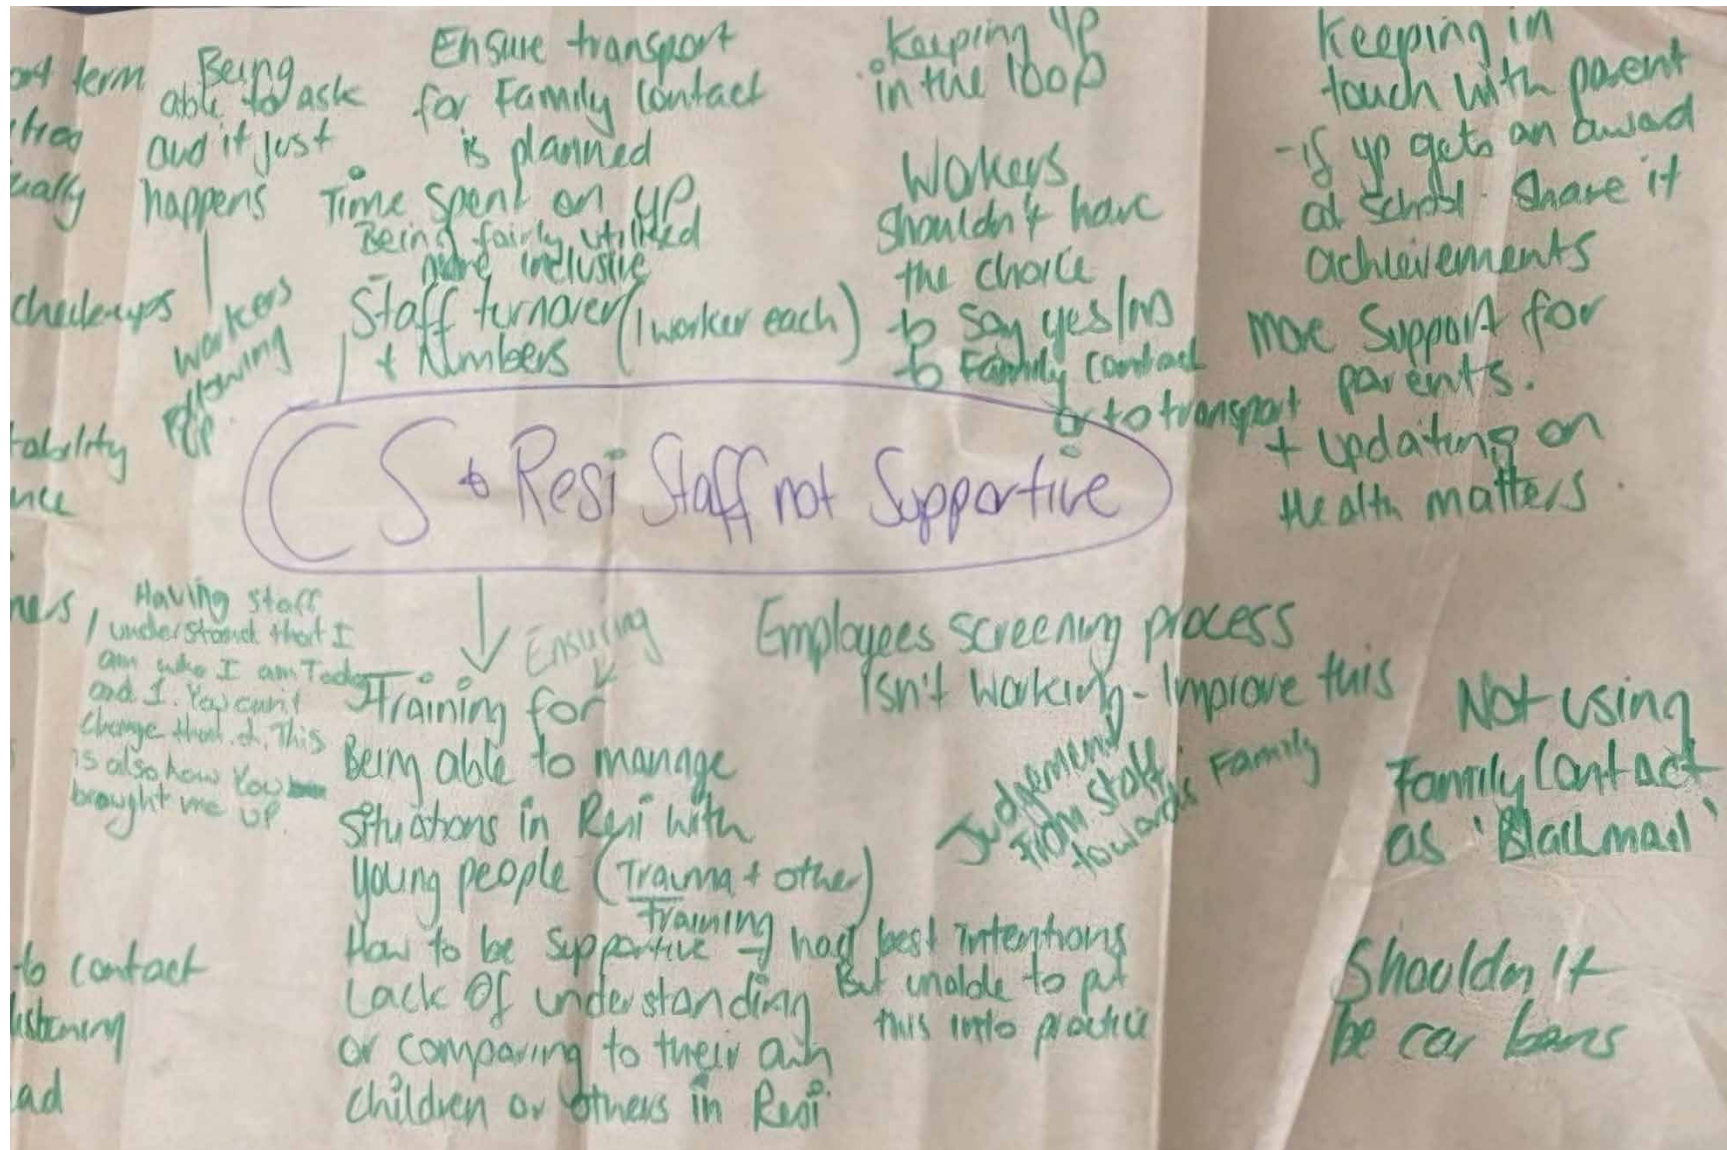 term
Being
able to ask
and it just
happens
workers
allowing
Ensure transport
for Family Contact
is planned
Time Spent on YP
Being fairly utilised
more inclusive
Staff turnover (1 worker each)
+ Numbers
Keeping YP
in the loop
Wokers
shouldn't have
the choice
to say yes/no
to Family Contact
or to transport
Keeping in
touch with parent
- if yp gets an award
at school. Share it
achievements
More Support for
parents.
+ updating on
Health matters.
checkups
CS + Resi Staff not Supportive
Having staff
understand that I
am who I am Today
and I. You can't
change that. This
is also how You
brought me up.
Ensuring
Training for
Being able to manage
situations in Resi with
young people (Trauma + other)
training
How to be Supportive → had best intentions
But unable to put
this into practice
Lack Of understanding
or comparing to their own
children or others in Resi
Employees screening process
Isn't Working - Improve this
Judgement
From staff
towards Family
Not using
Family Contact
as 'Blackmail'
Shouldn't
be car bans
to contact
listening